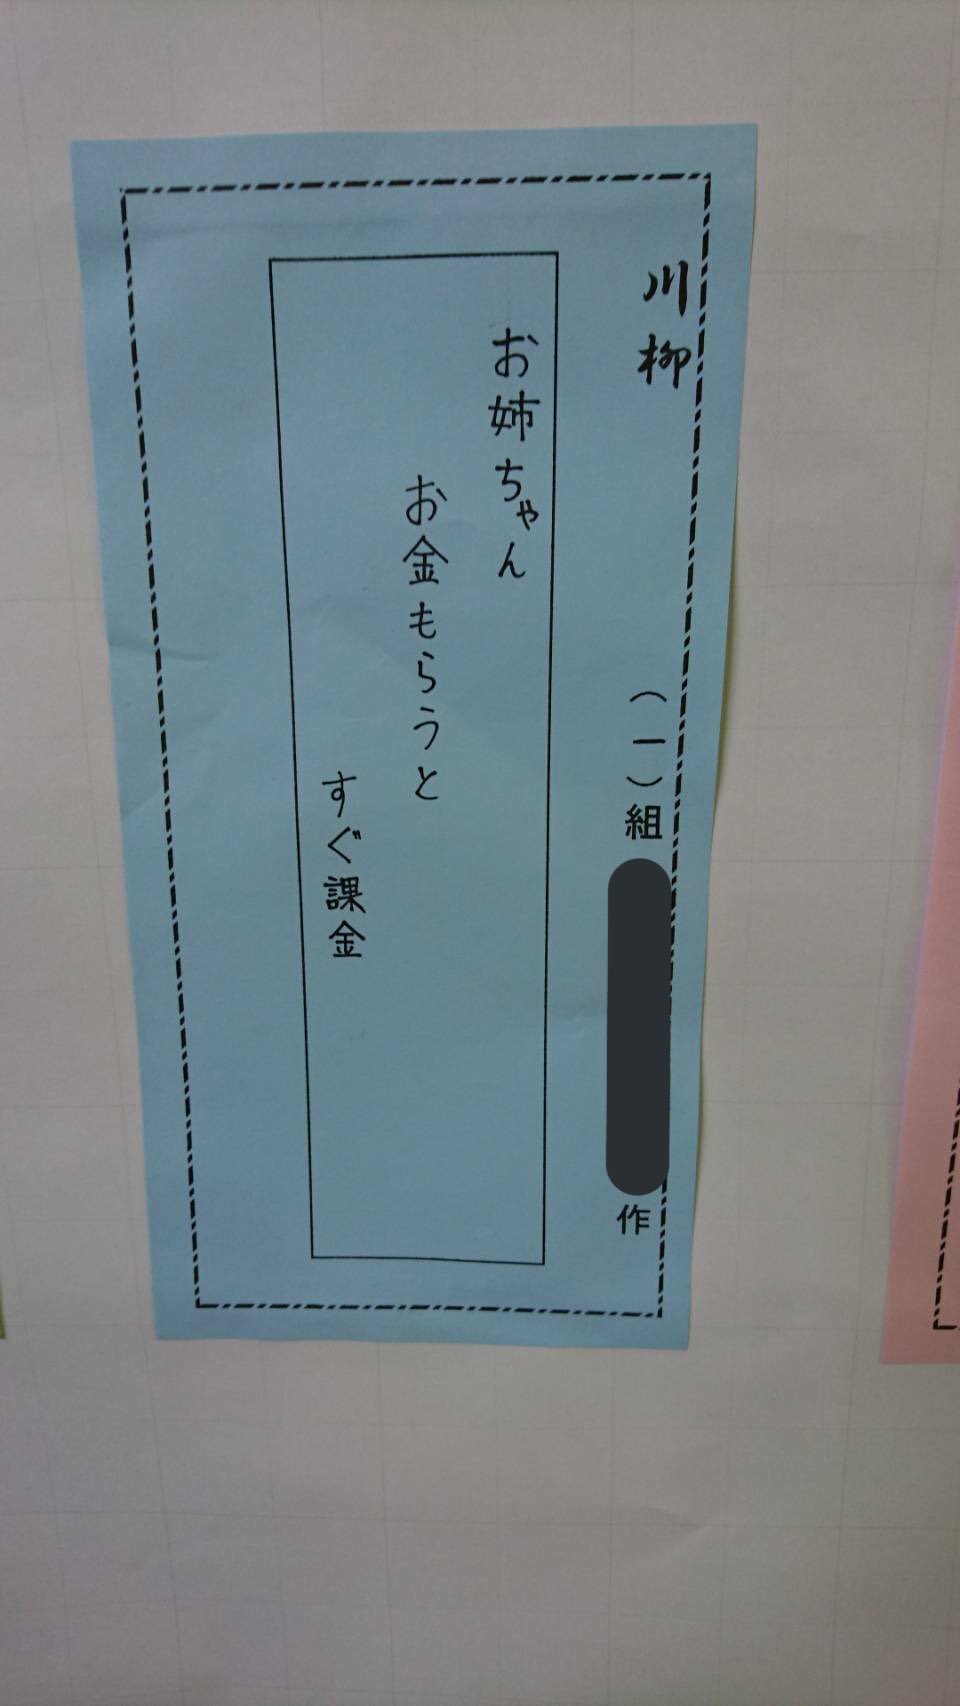 川柳
（一）組 作
お姉ちゃん
お金もらうと
すぐ課金